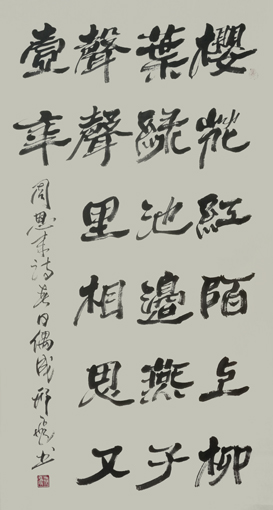 櫻花紅陌上柳
葉綠池邊燕子
聲聲里相思又
壹年
周恩來詩春日偶成 邢飛書